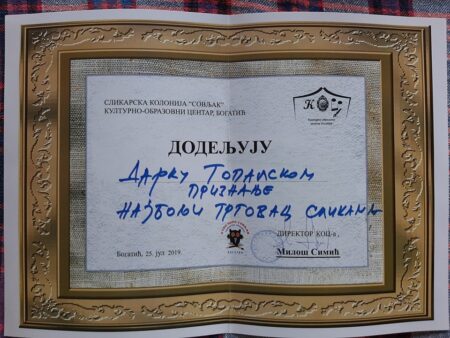 СЛИКАРСКА КОЛОНИЈА "СОВЉАК"
КУЛТУРНО-ОБРАЗОВНИ ЦЕНТАР, БОГАТИЋ
ДОДЕЉУЈУ
ДАРКУ ТОПАЛСКОМ
ПРИЗНАЊЕ
НАЈБОЉИ ТРГОВАЦ СЛИКАМА
ДИРЕКТОР КОЦ-а,
Богатић, 25. јул 2019.
Милош Симић